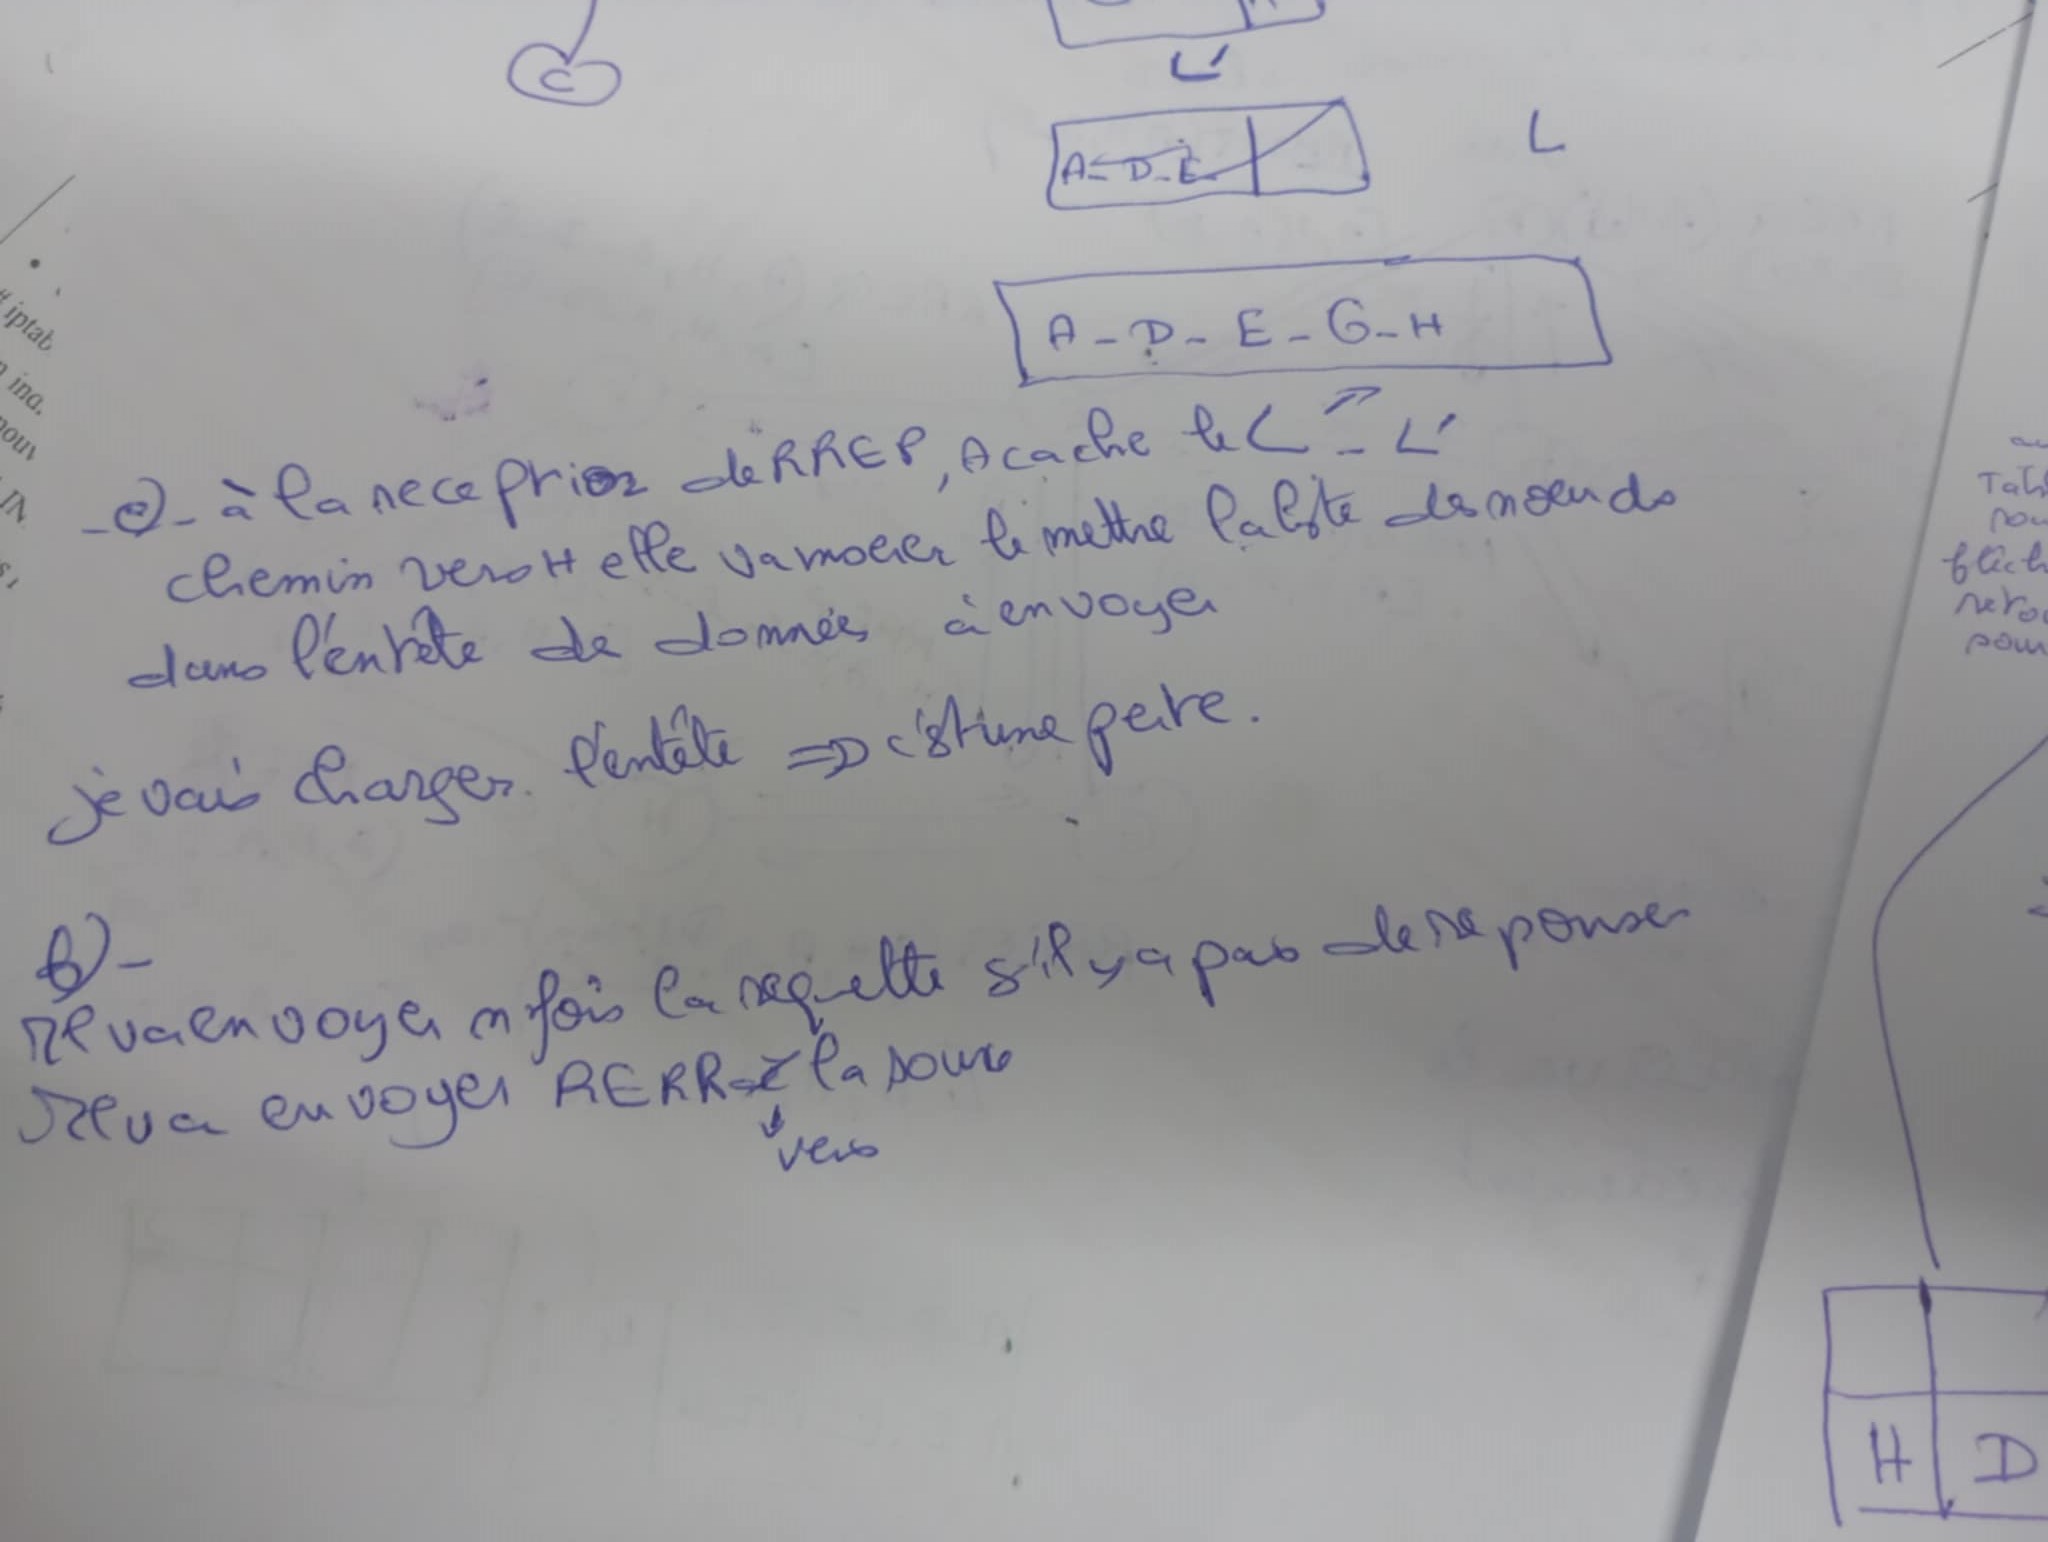 C
L'
A-D-E
L
A-D-E-G-H
-e)- à la reception de RREP, A cache le L - L'
chemin vers H elle va le mettre la liste des noeuds
dans l'entête de données à envoyer
je vais charger l'entête => c'st une perte.
b)-
Il va envoyer n fois la requette s'il y a pas de reponses
Il va envoyer RERR à la source
vers
# iptab
IN
pour
H D